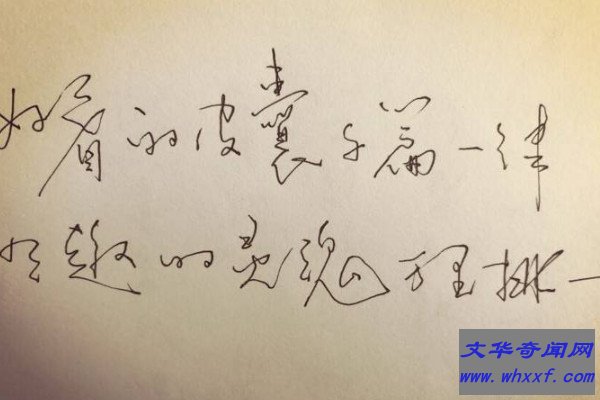 好看的皮囊千篇一律
有趣的灵魂万里挑一
文华奇闻网
www.whxxf.com